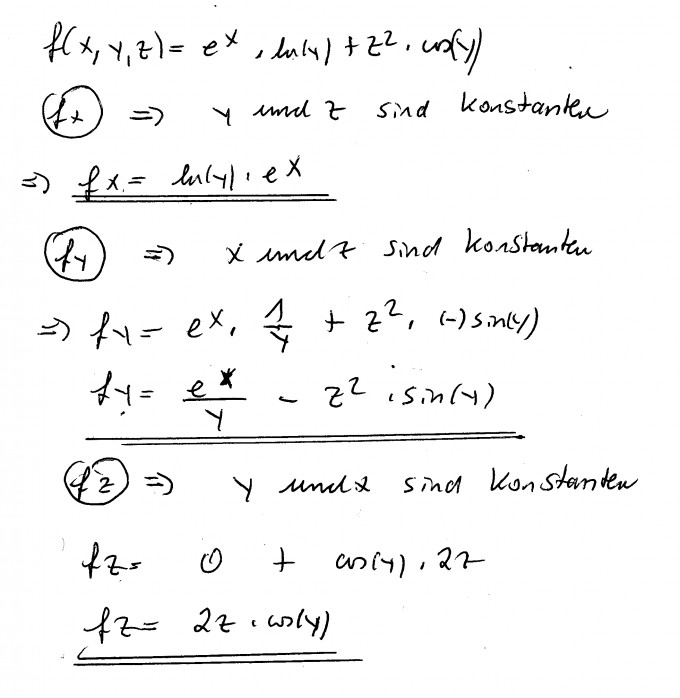 f(x, y, z) = e^x · ln(y) + z² · cos(y)
fx ⇒ y und z sind Konstanten
⇒ fx = ln(y) · e^x
fy ⇒ x und z sind Konstanten
⇒ fy = e^x · 1/y + z² · (-) sin(y)
fy = e^x/y - z² · sin(y)
fz ⇒ y und x sind Konstanten
fz = 0 + cos(y) · 2z
fz = 2z · cos(y)